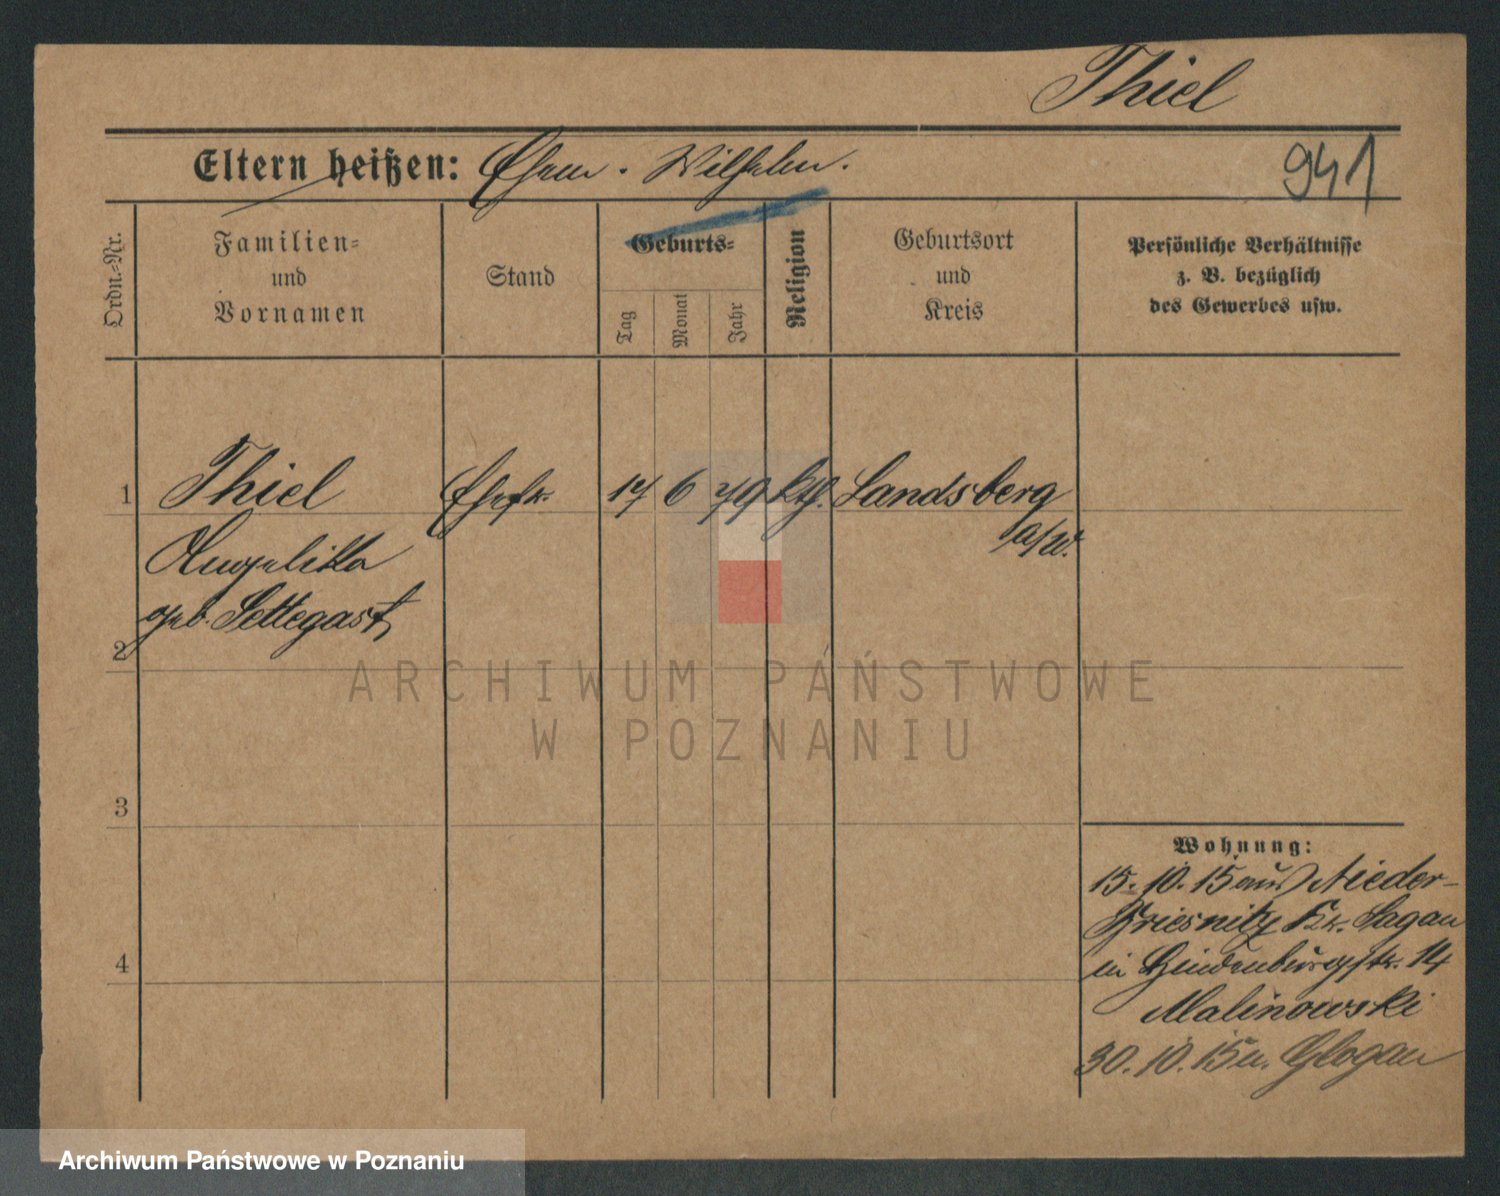 Thiel
Eltern heißen: Ehem. Wilhelm.
941
Ordn.-Nr.
Familien-
und
Vornamen
Stand
Geburts-
Tag
Monat
Jahr
Religion
Geburtsort
und
Kreis
Persönliche Verhältnisse
z. B. bezüglich
des Gewerbes usw.
1 Thiel Ehefr. 17 6 79 kth. Landsberg
a/W.
Angelika
geb. Settegast
2
3
4
Wohnung:
15.10.15 aus Nieder-
Briesnitz Kr. Sagan
in Hindenburgstr. 14
Malinowski
30.10.15 n. Glogau
ARCHIWUM PAŃSTWOWE
W POZNANIU
Archiwum Państwowe w Poznaniu